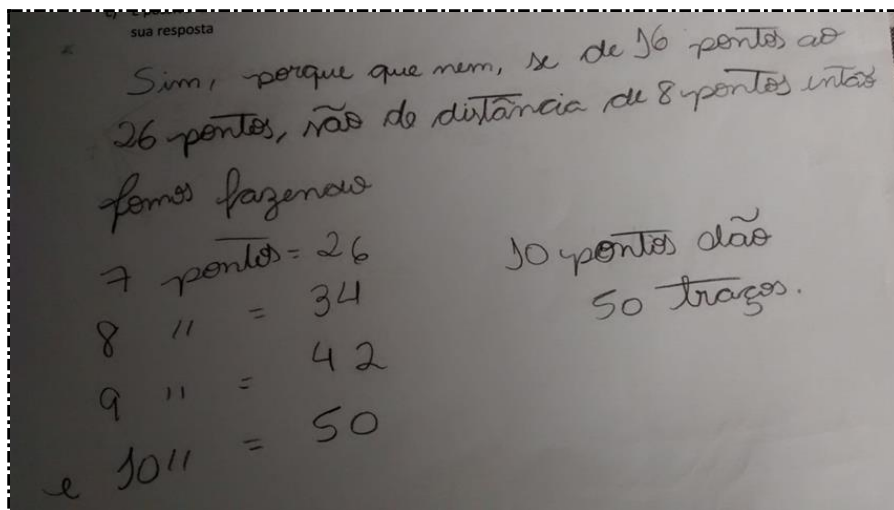 sua resposta
Sim, porque que nem, se de 16 pontos ao
26 pontos, são de distância de 8 pontos intão
fomos fazendo
7 pontos = 26
8 " = 34
9 " = 42
e 10 " = 50
10 pontos dão
50 traços.